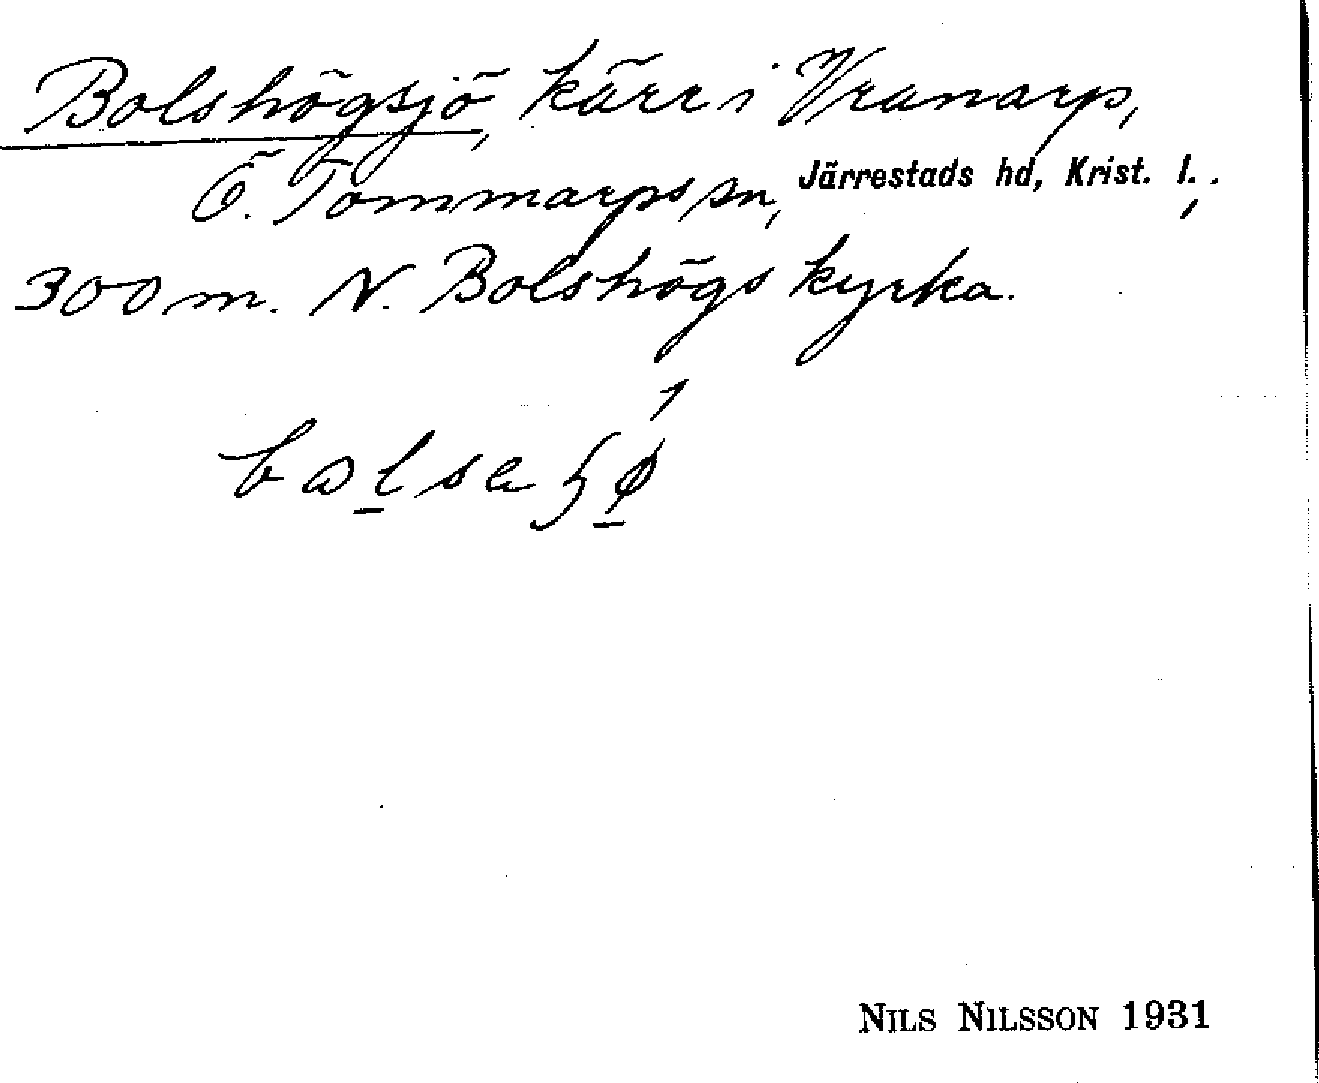 Bolshögsjö, kärr i Vranarp,
Ö. Tommarps sn, Järrestads hd, Krist. l.,
300 m. N. Bolshögs kyrka.
NILS NILSSON 1931